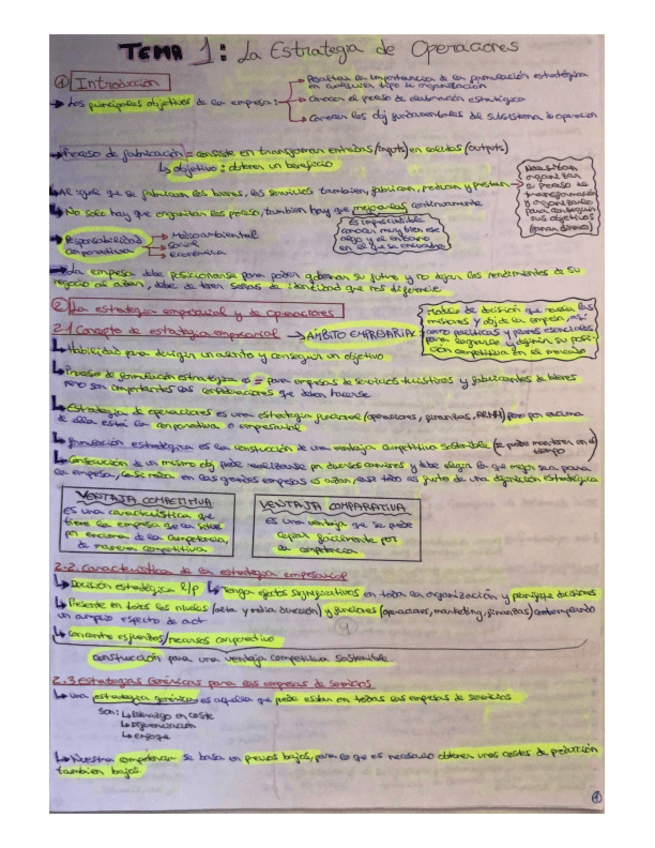 TEMA 1: La Estrategia de Operaciones
① Introducción
→ Los principales objetivos de la empresa:
→ Resaltar la importancia de la formulación estratégica
en cualquier tipo de organización
→ Conocer el proceso de elaboración estratégica
→ Conocer los obj fundamentales del subsistema de operación
→ Proceso de fabricación = consiste en transformar entradas (inputs) en salidas (outputs)
↳ objetivo: obtener un beneficio
→ Al igual que se fabrican los bienes, los servicios también fabrican, producen y prestan
→ Necesitan
organizar
el proceso de
transformación
y organizarlo
para conseguir
sus objetivos
(ganar dinero)
↳ No solo hay que organizar los proceso, también hay que mejorarlos continuamente
Es imprescindible
conocer muy bien ese
algo y el entorno
en el que se encuentra
→ Responsabilidad
corporativa
→ Medioambiental
→ Social
→ Económica
→ La empresa debe posicionarse para poder gobernar su futuro y no dejar los rendimientos de su
negocio al azar, debe de tener señas de identidad que nos diferencie
② La estrategia empresarial y de operaciones
2.1 Concepto de estrategia empresarial → AMBITO EMPRESARIAL:
Modelo de decisión que revela las
misiones y obj de la empresa, así
como políticas y planes esenciales
para lograrlos y definir su posi-
ción competitiva en el mercado
↳ Habilidad para dirigir un asunto y conseguir un objetivo
↳ Proceso de formulación estratégica es = para empresas de servicios turísticos y fabricantes de bienes
pero son importantes las que deben hacerse
↳ Estrategia de operaciones es una estrategia funcional (operaciones, finanzas, RRHH) pero por encima
de ella está la corporativa o empresarial
↳ Formulación estratégica es la construcción de una ventaja competitiva sostenible (se puede mantener en el
tiempo)
↳ Consecución de un mismo obj puede realizarse por diversos caminos y debe elegir la que mejor sea para
la empresa, en las grandes empresas es azar, ese todo es fruto de una estratégica
VENTAJA COMPETITIVA
es una característica que
tiene la empresa que la sitúe
por encima de la competencia
de manera competitiva
VENTAJA COMPARATIVA
es una ventaja que se puede
copiar fácilmente por
la competencia
2.2. Característica de la estrategia empresarial
↳ Decisión estratégica l/p ↳ Tengan efectos significativos en toda la organización y decisiones
↳ Presente en todos los niveles (alta y media dirección) y funciones (operaciones, marketing, finanzas) contemplando
un amplio espectro de act
↳ Concentre esfuerzos/recursos corporativo
construcción para una ventaja competitiva sostenible
2.3 Estrategias Genéricas para las empresas de servicios
↳ una estrategia genérica es aquella que puede estar en todas las empresas de servicios
Son: ↳ Liderazgo en coste
↳ Diferenciación
↳ enfoque
↳ Nuestra competencia se basa en precios bajos, para lo que es necesario obtener unos costes de producción
también bajos.
①